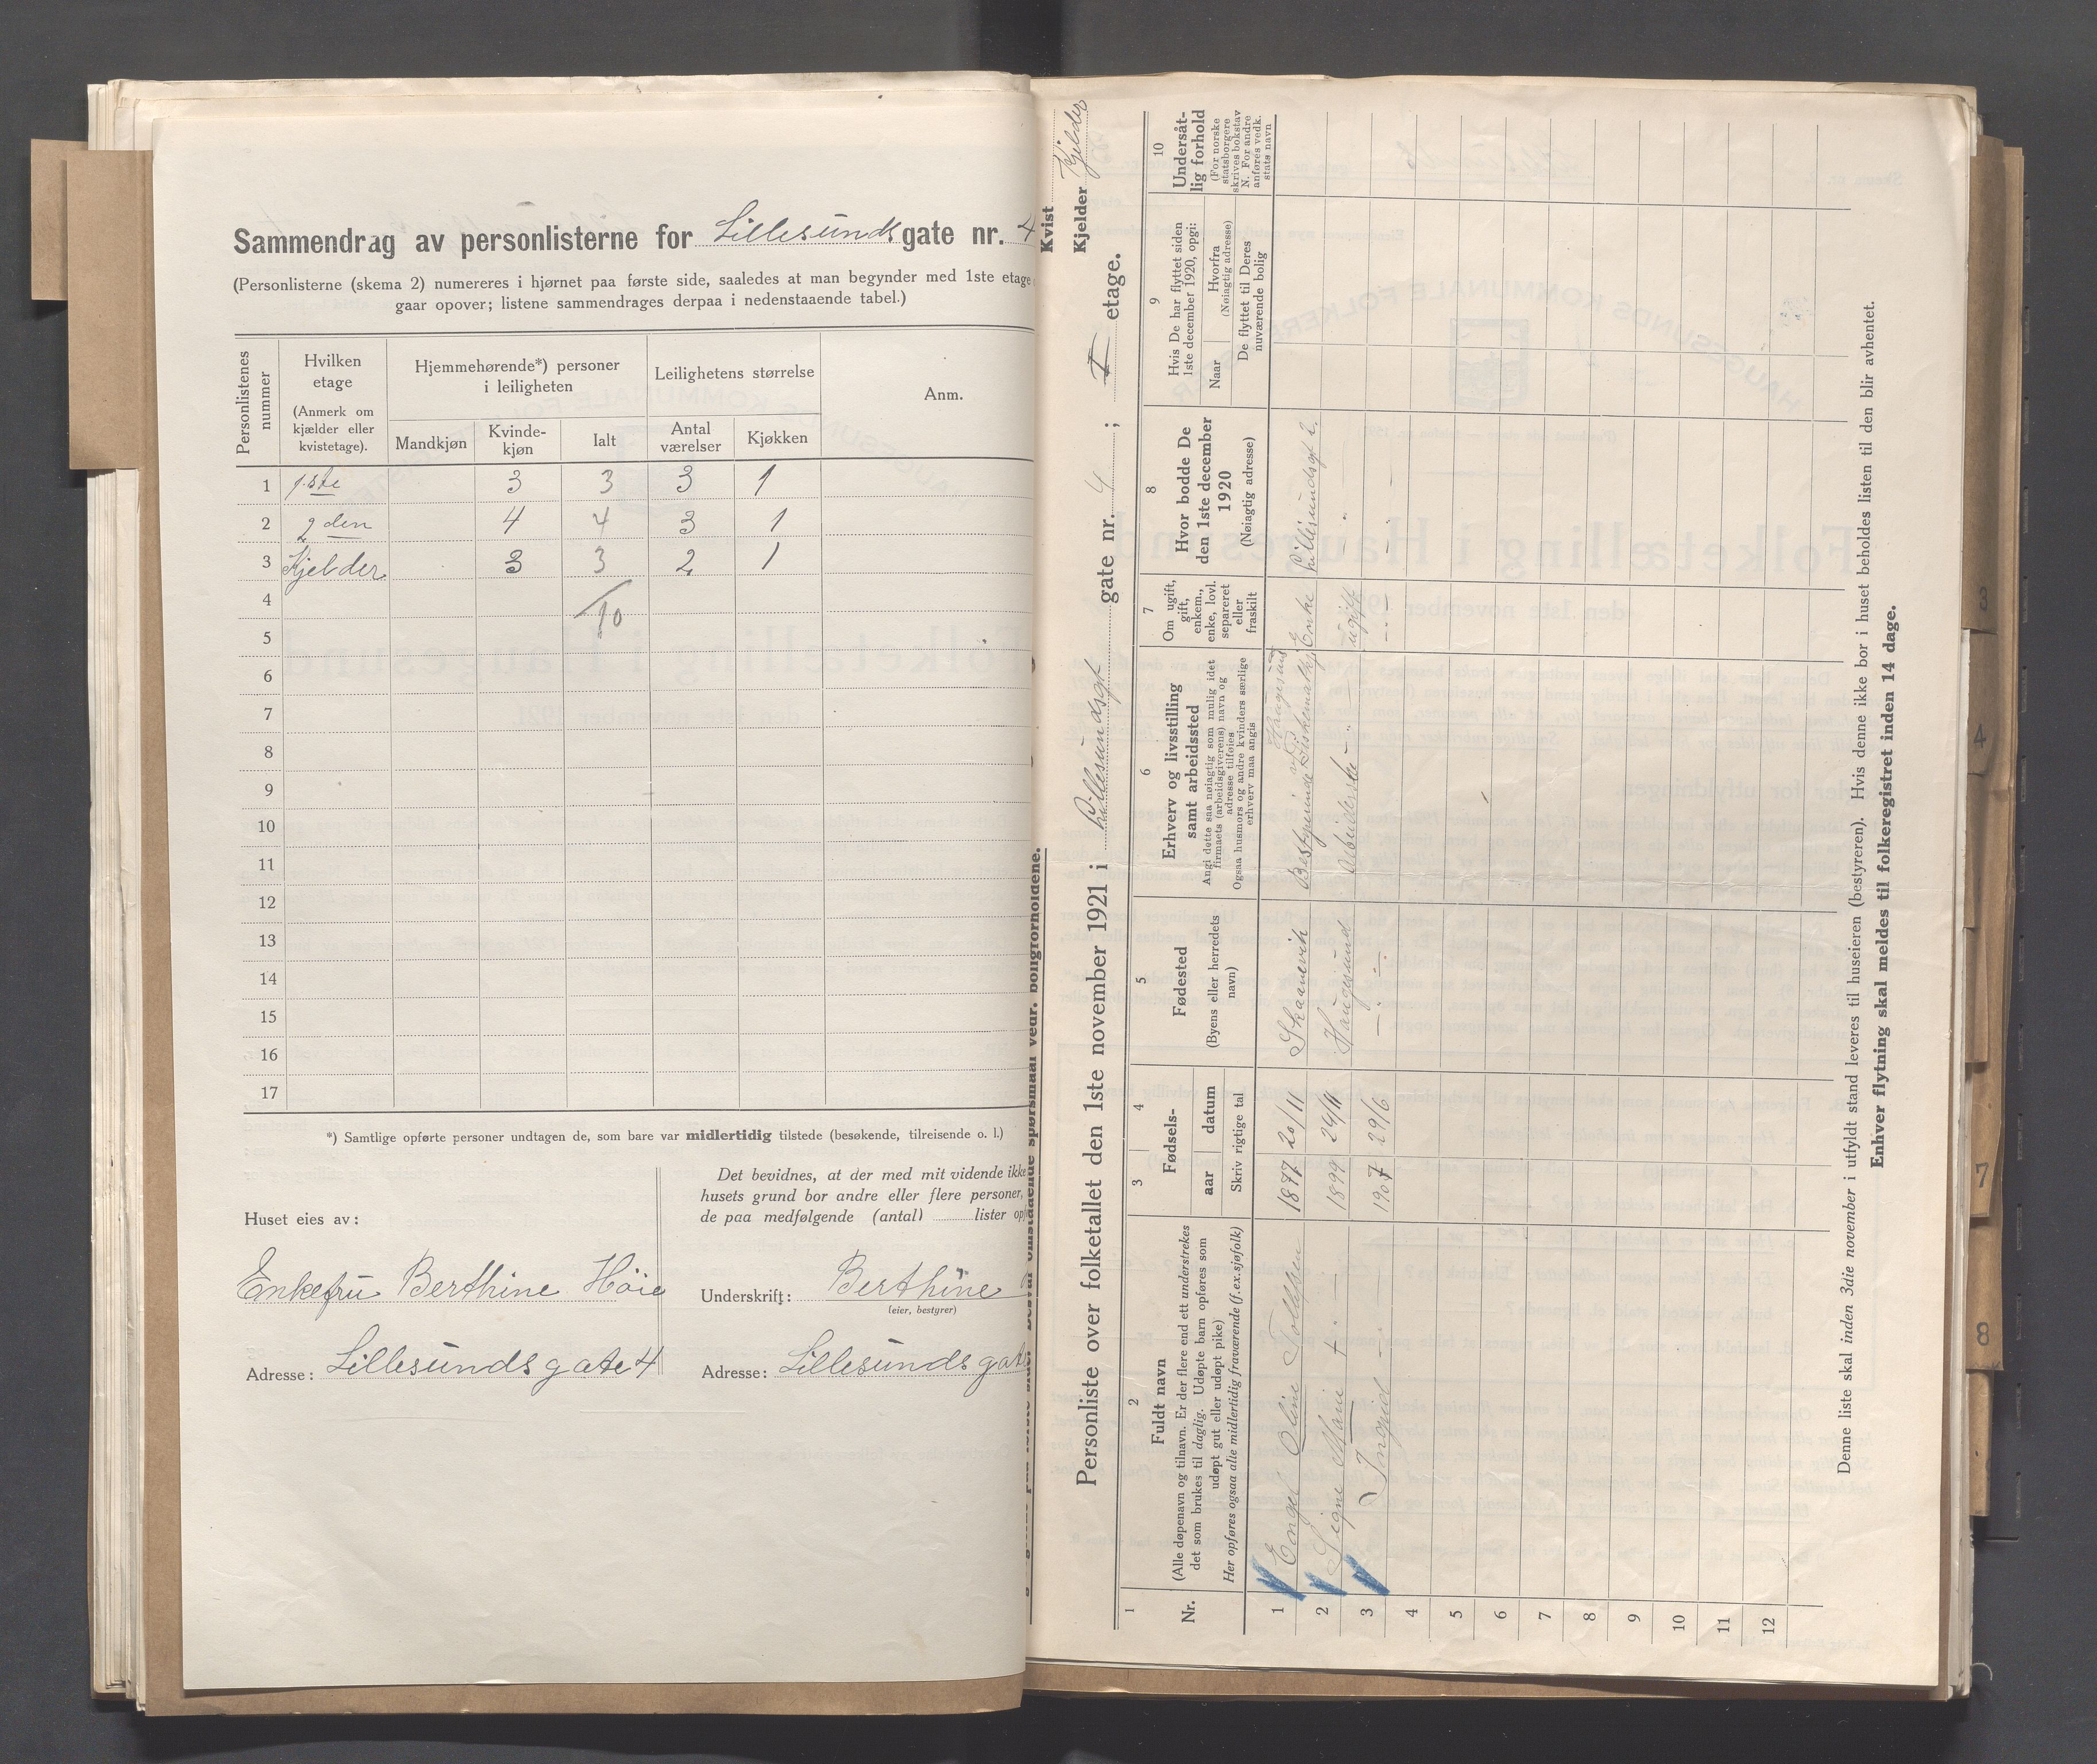 Sammendrag av personlisterne for Lillesunds gate nr. 4
(Personlisterne (skema 2) numereres i hjørnet paa første side, saaledes at man begynder med 1ste etage
gaar opover; listene sammendrages derpaa i nedenstaaende tabel.)
Personlistenes nummer
Hvilken etage
(Anmerk om kjælder eller kvistetage).
Hjemmehørende*) personer i leiligheten
Leilighetens størrelse
Anm.
Mandkjøn
Kvindekjøn
Ialt
Antal værelser
Kjøkken
1 1ste 3 3 3 1
2 2den 4 4 3 1
3 Kjelder 3 3 2 1
4
10
5
6
7
8
9
10
11
12
13
14
15
16
17
*) Samtlige opførte personer undtagen de, som bare var midlertidig tilstede (besøkende, tilreisende o. l.)
Huset eies av:
Enkefru Berthine Höie
Adresse: Lillesunds gate 4
Det bevidnes, at der med mit vidende ikke
husets grund bor andre eller flere personer,
de paa medfølgende (antal) lister
Underskrift: Berthine
(eier, bestyrer)
Adresse: Lillesunds gat
omstaaende spørsmaal vedr. boligforholdene.
Personliste over folketallet den 1ste november 1921 i Lillesundsgt gate nr. 4 ; I etage.
Kvist
Kjelder Kjelder
1
Nr.
2
Fuldt navn
(Alle døpenavn og tilnavn. Er der flere end ett understrekes
det som brukes til daglig. Udøpte barn opføres som
udøpt gut eller udøpt pike)
Her opføres ogsaa alle midlertidig fraværende (f.ex.sjøfolk)
3 4
Fødsels-
aar datum
Skriv rigtige tal
5
Fødested
(Byens eller herredets navn)
6
Erhverv og livsstilling
samt arbeidssted
Angi dette saa nøiagtig som mulig idet
firmaets (arbeidsgiverens) navn og
adresse tilføies
Ogsaa husmors og andre kvinders særlige
erhverv maa angis
7
Om ugift,
gift,
enkem.,
enke, lovl.
separeret
eller
fraskilt
8
Hvor bodde De
den 1ste december
1920
(Nøiagtig adresse)
9
Hvis De har flyttet siden
1ste december 1920, opgi:
Naar
Hvorfra
(Nøiagtig adresse)
De flyttet til Deres
nuværende bolig
10
Undersåt-
lig forhold
(For norske
statsborgere
skrives bokstav
N. For andre
anføres vedk.
stats navn
1 Engel Oline Tollefsen 1877 20/11 Skaanevik Bestyrerinde Haugesund Enke Lillesundsgt 2.
2 Signe Marie 1899 24/11 Haugesund Arbeiderske ugift
3 Ingrid 1907 29/6
4
5
6
7
8
9
10
11
12
Denne liste skal inden 3die november i utfyldt stand leveres til huseieren (bestyreren). Hvis denne ikke bor i huset beholdes listen til den blir avhentet.
Enhver flytning skal meldes til folkeregistret inden 14 dage.
3
4
7
8